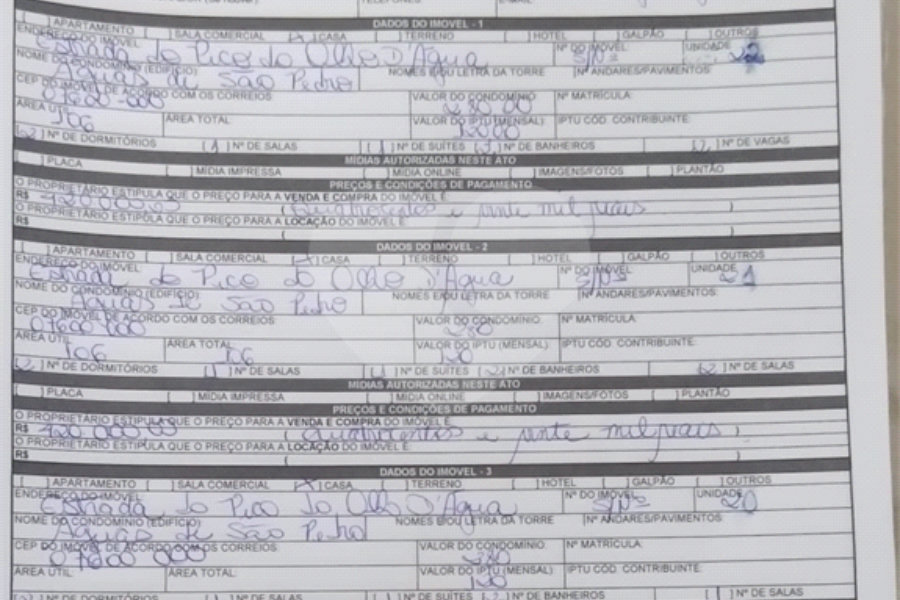 DADOS DO IMOVEL - 1
[ ] APARTAMENTO [ ] SALA COMERCIAL [X] CASA [ ] TERRENO [ ] HOTEL [ ] GALPÃO [ ] OUTROS
ENDEREÇO DO IMÓVEL Estrada do Pico do Olho D'Água Nº DO IMÓVEL S/Nº UNIDADE
NOME DO CONDOMÍNIO (EDIFÍCIO) Aguas de São Pedro NOMES E/OU LETRA DA TORRE Nº ANDARES/PAVIMENTOS:
CEP DO IMÓVEL DE ACORDO COM OS CORREIOS 07600-000 VALOR DO CONDOMÍNIO 280,00 Nº MATRÍCULA:
ÁREA ÚTIL 106 ÁREA TOTAL VALOR DO IPTU (MENSAL) 120,00 IPTU CÓD. CONTRIBUINTE:
[2] Nº DE DORMITÓRIOS [1] Nº DE SALAS [1] Nº DE SUÍTES [2] Nº DE BANHEIROS [2] Nº DE VAGAS
MÍDIAS AUTORIZADAS NESTE ATO
[ ] PLACA [ ] MÍDIA IMPRESSA [ ] MÍDIA ONLINE [ ] IMAGENS/FOTOS [ ] PLANTÃO
PREÇOS E CONDIÇÕES DE PAGAMENTO
O PROPRIETÁRIO ESTIPULA QUE O PREÇO PARA A VENDA E COMPRA DO IMÓVEL É:
R$ 420.000,00 (Quatrocentos e vinte mil reais )
O PROPRIETÁRIO ESTIPULA QUE O PREÇO PARA A LOCAÇÃO DO IMÓVEL É
R$ ( )
DADOS DO IMOVEL - 2
[ ] APARTAMENTO [ ] SALA COMERCIAL [X] CASA [ ] TERRENO [ ] HOTEL [ ] GALPÃO [ ] OUTROS
ENDEREÇO DO IMÓVEL Estrada do Pico do Olho D'Água Nº DO IMÓVEL S/Nº UNIDADE 21
NOME DO CONDOMÍNIO (EDIFÍCIO) Aguas de São Pedro NOMES E/OU LETRA DA TORRE Nº ANDARES/PAVIMENTOS:
CEP DO IMÓVEL DE ACORDO COM OS CORREIOS: 07600 000 VALOR DO CONDOMÍNIO: 280 Nº MATRÍCULA:
ÁREA ÚTIL 106 ÁREA TOTAL 106 VALOR DO IPTU (MENSAL) 120 IPTU CÓD. CONTRIBUINTE:
[2] Nº DE DORMITÓRIOS [1] Nº DE SALAS [1] Nº DE SUÍTES [2] Nº DE BANHEIROS [2] Nº DE SALAS
MÍDIAS AUTORIZADAS NESTE ATO
[ ] PLACA [ ] MÍDIA IMPRESSA [ ] MÍDIA ONLINE [ ] IMAGENS/FOTOS [ ] PLANTÃO
PREÇOS E CONDIÇÕES DE PAGAMENTO
O PROPRIETÁRIO ESTIPULA QUE O PREÇO PARA A VENDA E COMPRA DO IMÓVEL É
R$ 420.000,00 (Quatrocentos e vinte mil reais )
O PROPRIETÁRIO ESTIPULA QUE O PREÇO PARA A LOCAÇÃO DO IMÓVEL É
R$ (
DADOS DO IMOVEL - 3
[ ] APARTAMENTO [ ] SALA COMERCIAL [X] CASA [ ] TERRENO [ ] HOTEL [ ] GALPÃO [ ] OUTROS
ENDEREÇO DO IMÓVEL Estrada do Pico do Olho D'Água Nº DO IMÓVEL S/Nº UNIDADE 20
NOME DO CONDOMÍNIO (EDIFÍCIO) Aguas de São Pedro NOMES E/OU LETRA DA TORRE Nº ANDARES/PAVIMENTOS:
CEP DO IMÓVEL DE ACORDO COM OS CORREIOS 07600 000 VALOR DO CONDOMÍNIO: 280 Nº MATRÍCULA:
ÁREA ÚTIL: ÁREA TOTAL: VALOR DO IPTU (MENSAL) 120 IPTU CÓD. CONTRIBUINTE:
Nº DE DORMITÓRIOS [ ] Nº DE SALAS Nº DE SUÍTES [2] Nº DE BANHEIROS [ ] Nº DE SALAS